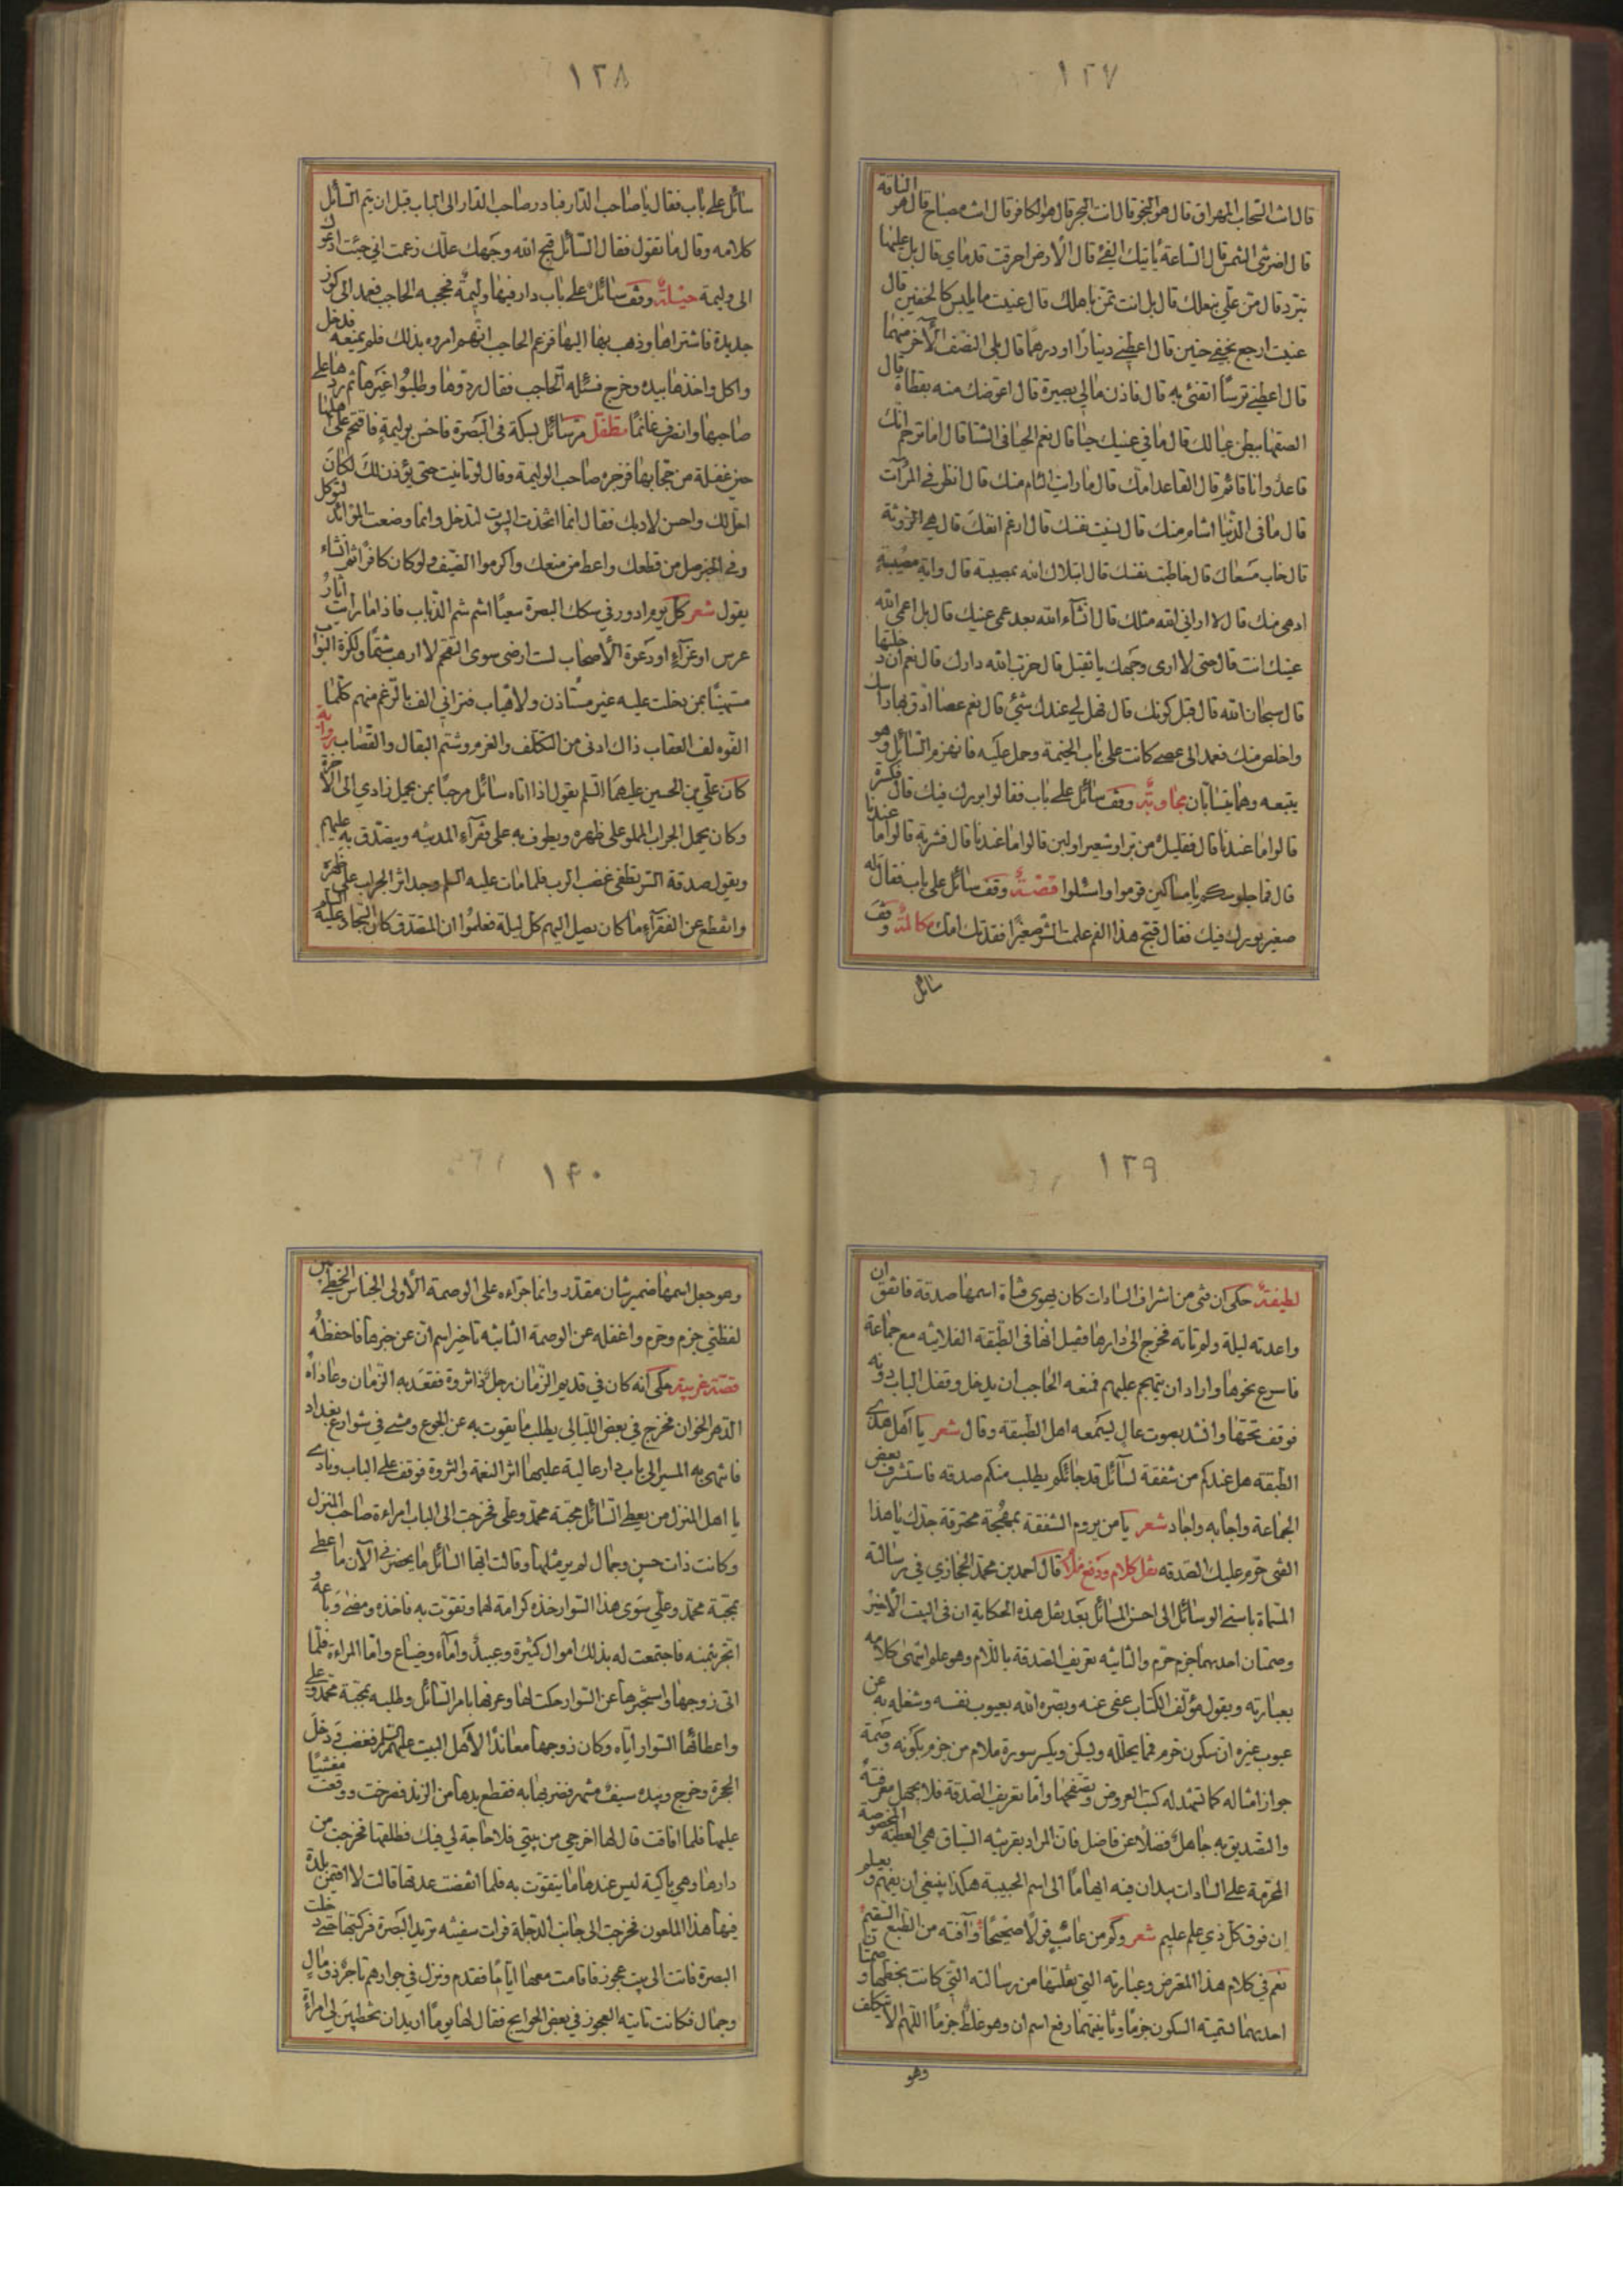 ١٢٧
قال انت السحاب المهراق قال هو النجو قال انت البحر قال هو الكافر قال انت مصباح قال هو الناقة
قال اضربتني الشمس قال الساعة ياتيك الفئ قال الارض احرقت قدماي قال بل عليهما
تبرد قال من علي بنعلك قال بل انت تمن باهلك قال عنيت ما يلبس كالخفين قال
عنيت ارجع بخفي حنين قال اعطني دينارا او درهما قال بلى النصف الآخر منهما
قال اعطني ترسا اتقئ به قال فاذن مالي بصيرة قال اعوضك منه بقطاة قال
الصقها ببطن عيالك قال ما في عينيك حيا قال نعم الحيا في الشتا قال اما ترحم انك
قاعد وانا قائم قال القاعد امك قال ما رايت الئام منك قال انظر في المرآت
قال ما في الدنيا اشام منك قال نسيت نفسك قال ارغم انفك قال هي الخزوثة
قال خاب مسعاك قال خاطبت نفسك قال ابتلاك الله بمصيبة قال واية مصيبة
ادهى منك قال لا اراني الله مثلك قال انشآء الله بعد عمى عينيك قال بل اعمى الله
عينيك انت قال حتى لا ارى وجهك يا ثقيل قال خرب الله دارك قال نعم ان دخلتها
قال سبحان الله قال قبل كونك قال فهل لي عندك شئ قال نعم عصا ادق بها راسك
واخلص منك فعمد الى عصى كانت على باب الخيمة وحمل عليه فانهزم السائل وهو
يتبعه وهما يتسابان مجاوبة وقف سائل على باب فقالوا بورك فيك قال فكسرة
قالوا ما عندنا قال فقليل من بر او شعير او لبن قالوا ما عندنا قال فشربة قالوا ما عندنا
قال فما جلوسكم يا مساكين قوموا واسئلوا قصة وقف سائل على باب فقال له
صغير بورك فيك فقال قبح هذا الفم علمت الشر صغيرا فقدتك امك مكالمة وقف
سائل
١٢٨
سائل على باب فقال يا صاحب الدار فبادر صاحب الدار الى الباب قبل ان يتم السائل
كلامه وقال ما تقول فقال السائل قبح الله وجهك علك زعمت اني جئت ادعوك
الى وليمة حيلة وقف سائل على باب دار فيها وليمة فحجبه الحاجب فعمد الى كوز
جديدة فاشتراها وذهب بها اليها فزعم الحاجب انهم امروه بذلك فلم يمنعه فدخل
واكل واخذها بيده وخرج فسئله الحاجب فقال ردوها وطلبوا غيرها ثم ردها على
صاحبها وانصرف غانما متطفل مر سائل بسكة في البصرة فاحس بوليمة فاقتحم على اهلها
حين غفلة من حجابها فزجره صاحب الوليمة وقال لو تانيت حتى يؤذن لك لكان
اجل لك واحسن لادبك فقال انما اتخذت البيوت لتدخل وانما وضعت الموائد لتوكل
وفي الخبر صل من قطعك واعط من منعك واكرموا الضيف ولو كان كافرا ثم انشاء
يقول شعر كل يوم ادور في سكك البصرة سعيا اشم شم الذباب فاذا ما رايت اثار
عرس او عزآء او دعوة الاصحاب لست ارضى سوى التقحم لا ارهب شتما ولكزة البواب
مستهينا بمن دخلت عليه غير مستاذن ولا هياب فتراني الف بالرغم منهم كلما
القوه لف العقاب ذاك ادنى من التكلف والغرم وشتم البقال والقصاب رواية
كان علي بن الحسين عليهما السلم يقول اذا اتاه سائل مرحبا بمن يحمل زادي الى الاخرة
وكان يحمل الجراب المملو على ظهره ويطوف به على فقرآء المدينه ويتصدق به عليهم
ويقول صدقة السر تطفئ غضب الرب فلما مات عليه السلم وجد اثر الجراب على ظهره
وانقطع عن الفقرآء ما كان يصل اليهم كل ليلة فعلموا ان المتصدق كان السجاد عليه السلم
١٢٩
لطيفة حكى ان فتى من اشراف السادات كان يهوى فتاة اسمها صدقة فاتفق ان
واعدته ليلة ولم تاته فخرج الى دارها فقيل انها في الطبقة الفلانيه مع جماعة
فاسرع نحوها واراد ان يتهجم عليهم فمنعه الحاجب ان يدخل وقفل الباب دونه
فوقف تحتها وانشد بصوت عال ليسمعه اهل الطبقة وقال شعر يا اهل هذي
الطبقه هل عندكم من شفقة لسآئل قد جائكم يطلب منكم صدقه فاستشرف بعض
الجماعة واجابه واجاد شعر يا من يروم الشفقة بمهجة محترقة جدك يا هذا
الفتى حرم عليك الصدقه نقل كلام ودفع ملام قال احمد بن محمد الحجازي في رسالته
المسماة باسنى الوسائل الى احسن المسائل بعد نقل هذه الحكاية ان في البيت الاخير
وصمتان احديهما جزم حرم والثانيه تعريف الصدقة باللام وهو علم انتهى كلامه
بعبارته ويقول مؤلف الكتاب عفى عنه وبصره الله بعيوب نفسه وشغله به عن
عيوب غيره ان سكون حرم فما يحلله ويسكن ويكسر سورة ملام من جزم بكونه وصمة
جواز امثاله كما تشهد له كتب العروض وتصفحها واما تعريف الصدقة فلا يجهل معرفته
والتصديق به جاهل فضلا عن فاضل فان المراد بقرينه السياق هي العطية المخصوصة
المحرمة على السادات بيد ان فيه ايهاما الى اسم الحبيبة هكذا ينبغي ان يفهم ويعلم
ان فوق كل ذي علم عليم شعر وكم من عائب قولا صحيحا وآفته من الطبع السقيم
نعم في كلام هذا المعترض وعبارته التي نقلتها من رسالته التي كانت بخطها وصمتان
احديهما تسميته السكون جزما وثانيتهما رفع اسم ان وهو غلط جزما اللهم الا بتكلف
وهو
١۴٠
وهو جعل اسمها ضمير شان مقدر وانما جراءه على الوصمة الاولى الجناس الخطي بين
لفظتي جزم وحرم واغفله عن الوصمة الثانيه تاخير اسم ان عن خبرها فاحفظه
قصة غريبة حكى انه كان في قديم الزمان رجل ذا ثروة فقعد به الزمان وعاداه
الدهر الخوان فخرج في بعض الليالي يطلب ما يقوت به عن الجوع ومشى في شوارع بغداد
فانتهى به المسير الى باب دار عالية عليها اثر النعمة والثروة فوقف على الباب ونادى
يا اهل المنزل من يعطي السائل بمحبة محمد وعلي فخرجت الى الباب امراءة صاحب المنزل
وكانت ذات حسن وجمال لم ير مثلها وقالت ايها السائل ما يحضرني الآن ما اعطي
بمحبة محمد وعلي سوى هذا السوار خذه كرامة لهما وتقوت به فاخذه ومضى وباعه و
اتجر بثمنه فاجتمعت له بذلك اموال كثيرة وعبيد وامآء وضياع واما المراءة فلما
اتى زوجها واستخبرها عن السوار حكت لها وعرفها بامر السائل وطلبه بمحبة محمد وعلي
واعطائها السوار اياه وكان زوجها معاندا لاهل البيت عليهم السلم فغضب ودخل
الحجرة وخرج وبيده سيف مشهر فضربها به فقطع يدها من الزند فصرخت ووقعت مغشيا
عليها فلما افاقت قال لها اخرجي من بيتي فلا حاجة لي فيك فطلقها فخرجت من
دارها وهي باكية ليس عندها ما يتقوت به فلما انقضت عدتها قالت لا اقيمن بلدة
فيها هذا الملعون فخرجت الى جانب الدجلة فرات سفينه تريد البصرة فركبتها حتى دخلت
البصرة فاتت الى بيت عجوز فاقامت معها اياما فقدم ونزل في جوارهم تاجر ذو مال
وجمال فكانت تاتيه العجوز في بعض الحوايج فقال لها يوما اريد ان تخطبين لي امراة